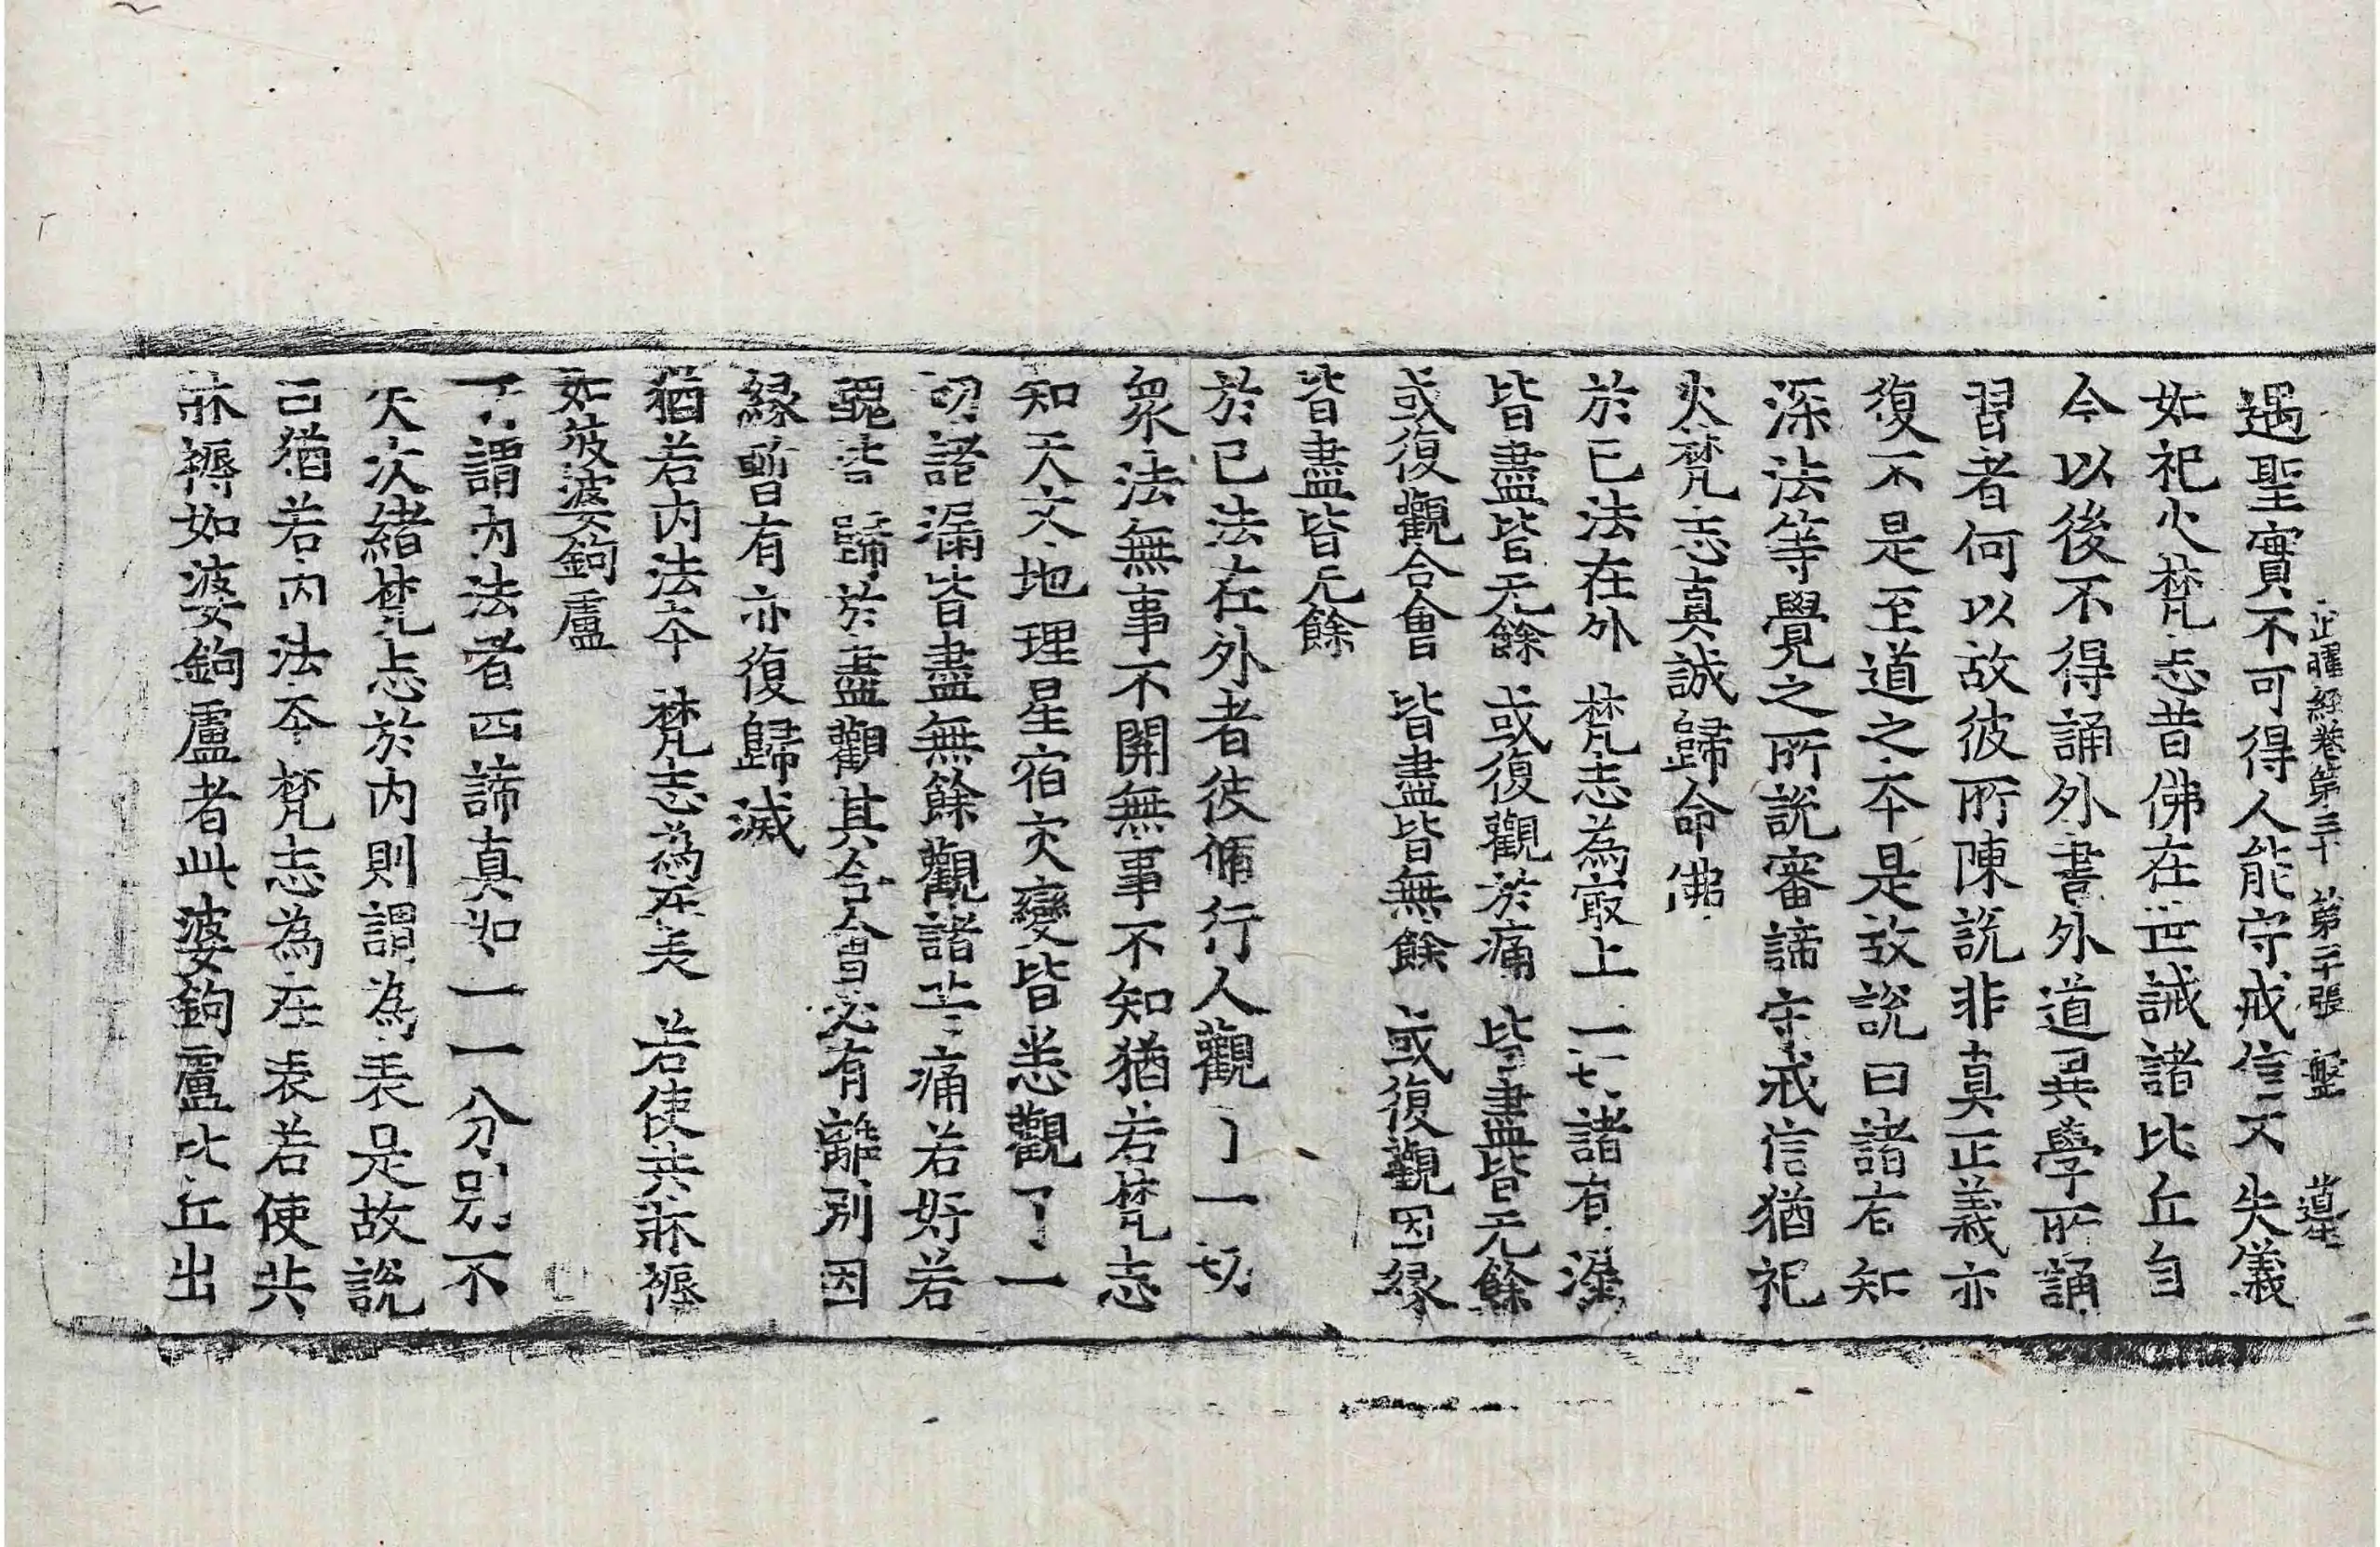 出曜經卷第三十 第二十張 盤 道
遇聖實不可得人能守戒信不失儀
如祀火梵志昔佛在世誡諸比丘自
今以後不得誦外書外道異學所誦
習者何以故彼所陳說非真正義亦
復不是至道之本是故說曰諸有知
深法等覺之所說審諦守戒信猶祀
火梵志真誠歸命佛
於已法在外 梵志為㝡上 一切諸有漏
皆盡皆无餘 或復觀於痛 皆盡皆无餘
或復觀合會 皆盡皆無餘 或復觀因縁
皆盡皆无餘
於已法在外者彼脩行人觀了一切
衆法無事不開無事不知猶若梵志
知天文地理星宿灾變皆悉觀了一
切諸漏皆盡無餘觀諸痛若好若
醜皆歸於盡觀其合會必有離別因
縁暫有亦復歸滅
猶若内法本 梵志為在表 若使共䟽褥
如彼婆鉤盧
了謂内法者四諦真如一一分別不
失次緒梵志於内則謂為表是故說
曰猶若内法本梵志為在表若使共
䟽褥如婆鉤盧者此婆鉤盧比丘出